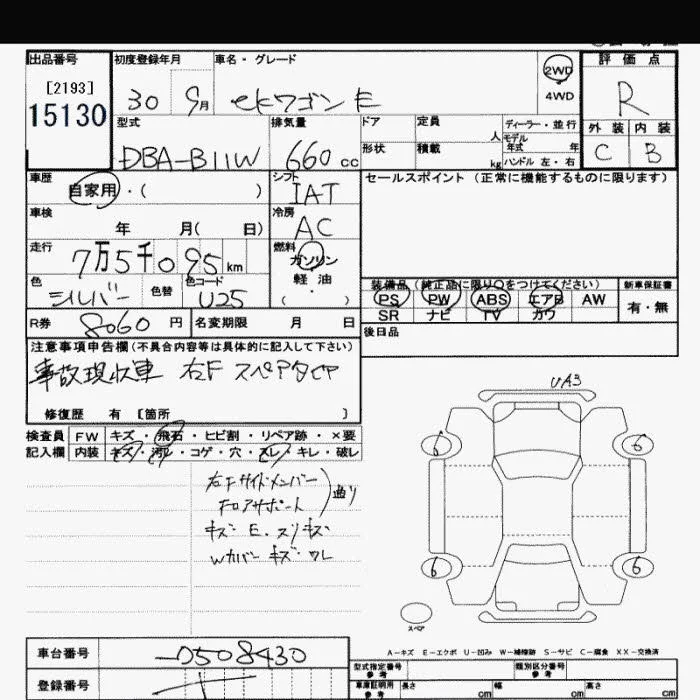 出品番号 初度登録年月 車名・グレード 評価点
[2193]
15130
30 9月 ekワゴン E
2WD
4WD
R
型式 排気量 ドア 定員 人 ディーラー・並行
モデル年式 年
外装 内装
DBA-B11W 660cc 形状 積載 kg ハンドル 左・右
C B
車歴 シフト セールスポイント(正常に機能するものに限ります)
自家用・( ) IAT
車検 冷房
年 月( 日) AC
走行 燃料
7万5千095km ガソリン
色 色替 色コード 軽油
シルバー U25 ( ・ )
装備品(純正品に限り〇をつけてください) 新車保証書
PS PW ABS エアB AW 有・無
SR ナビ TV カワ
R券 8060円 名変期限 月 日 後日品
注意事項申告欄(不具合内容等は具体的に記入して下さい)
事故現収車 右F スペアタイヤ
修復歴 有 [箇所 ]
UA3
検査員 FW キズ・飛石・ヒビ割・リペア跡・×要
記入欄 内装 キズ・汚レ・コゲ・穴・スレ・キレ・破レ
6 6
右Fサイドメンバー
フロアサポート
曲り
キズ E.スリキズ
Wカバー キズ・ワレ
6 6
スペア
A-キズ E-エクボ U-凹み W-補修跡 S-サビ C-腐食 XX-交換済
車台番号 -0508430
型式指定番号 参考 類別区分番号 参考
登録番号
車庫証明用 参考 長さ cm 幅 cm 高さ cm